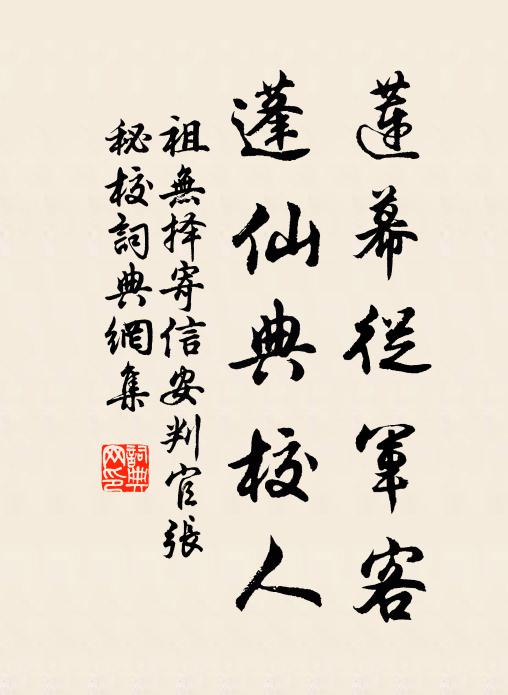 蓮幕從軍客
蓬仙典校人
祖無择寄信安判官張
秘校詞典網集
詞典網印